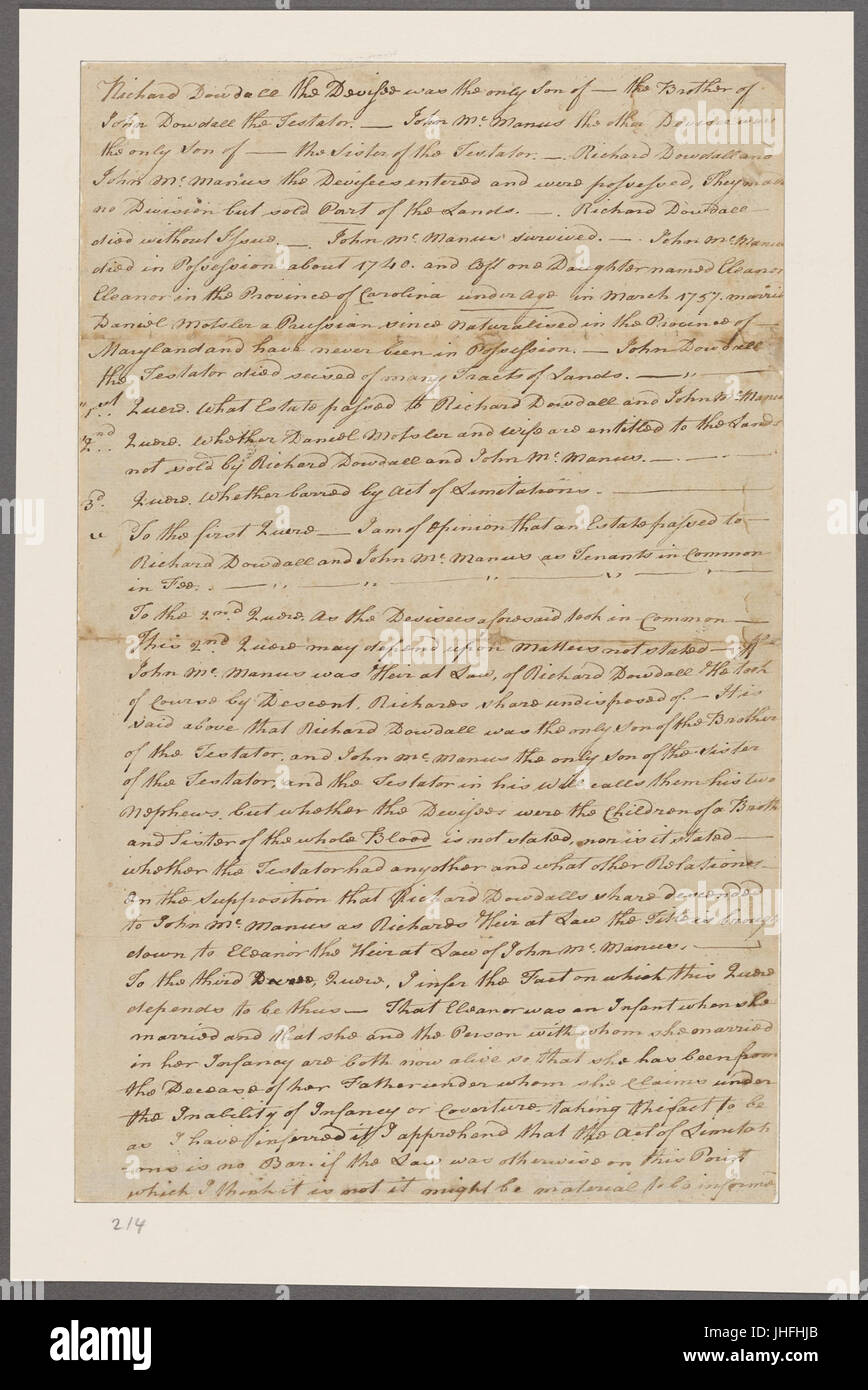 Richard Dowdall the Devisee was the only Son of — the Brother of
John Dowdall the Testator. — John Mc. Manus the other Devisee were
the only Son of — the Sister of the Testator. — Richard Dowdall and
John Mc. Manus the Devisees entered and were possessed, They made
no Division but sold Part of the Lands. — . Richard Dowdall —
died without Issue. — . John Mc. Manus survived. — . John Mc. Manus
died in Possession about 1740. and left one Daughter named Eleanor
Eleanor in the Province of Carolina under age in March 1757. married
Daniel Motsler a Prussian since Naturalised in the Province of —
Maryland and have never been in Possession. — John Dowdall
the Testator died seised of many Tracts of Lands. —
1st Quere. What Estate passed to Richard Dowdall and John Mc. Manus
2nd Quere. Whether Daniel Motsler and Wife are entitled to the Lands
not sold by Richard Dowdall and John Mc. Manus. —
3d. Quere. Whether barred by Act of Limitations. —
To the first Quere — I am of Opinion that an Estate passed to
Richard Dowdall and John Mc. Manus as Tenants in Common
in Fee. —
To the 2nd. Quere. As the Devisees aforesaid took in Common —
This 2nd Quere may depend upon Matters not stated — If
John Mc. Manus was Heir at Law, of Richard Dowdall He took
of Course by Descent, Richards share undisposed of. — It is
said above that Richard Dowdall was the only son of the Brother
of the Testator. and John Mc Manus the only Son of the Sister
of the Testator, and the Testator in his Will calls them his two
Nephews. but whether the Devisees were the Children of a Broth
and Sister of the whole Blood is not stated, nor is it stated —
whether the Testator had any other and what other Relations —
On the Supposition that Richard Dowdalls share descended
to John Mc. Manus as Richards Heir at Law the Title is brough
down to Eleanor the Heir at Law of John Mc. Manus. —
To the third Quere, I infer the Fact on which this Quere
depends to be thus — That Eleanor was an Infant when she
married and that she and the Person with whom she married
in her Infancy are both now alive so that she has been from
the Decease of her Father under whom she Claims under
the Inability of Infancy or Coverture. taking this fact to be
as I have inferred it I apprehend that the Act of Limitati
ons is no Bar. if the Law was otherwise on this Point
which I think it is not it might be material to be informe
214
alamy stock photo
JHFHJB
www.alamy.com